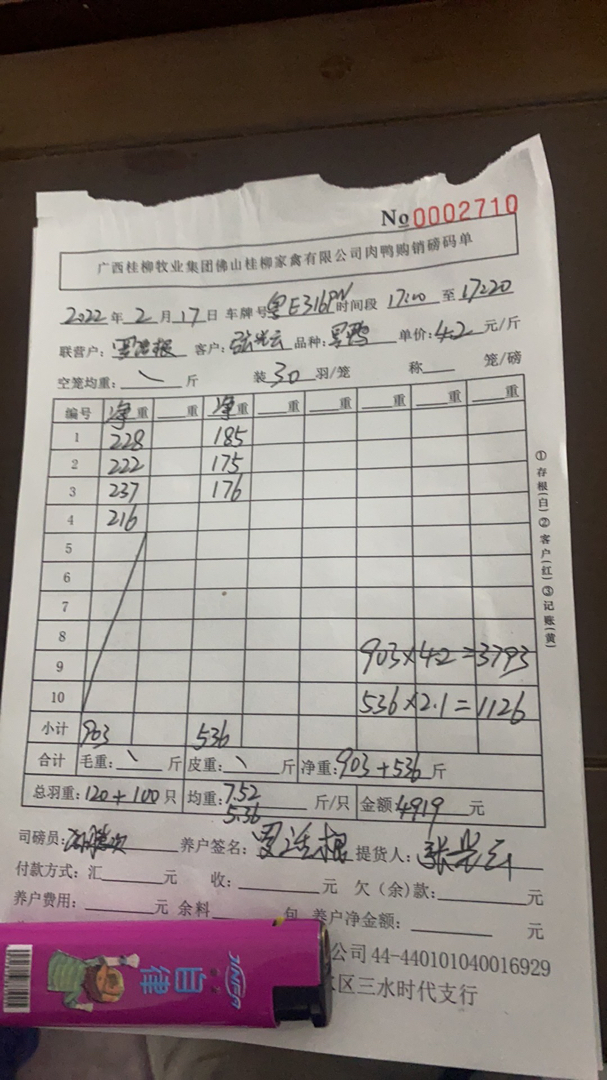 No 0002710
广西桂柳牧业集团佛山桂柳家禽有限公司肉鸭购销磅码单
2022年2月17日 车牌号粤E316PN时间段 17:00 至17:20
联营户： 客户： 品种： 单价：4.2元/斤
空笼均重：\斤 装30羽/笼 称 笼/磅
编号 净重 重 净重 重 重 重 重 重
1 228 185
2 222 175
3 237 176
4 216
5
6
7
8
9 903×4.2=3793
10 536×2.1=1126
小计 903 536
合计 毛重：\斤 皮重：\斤 净重：903+536斤
总羽重：120+100只 均重：7.52 5.36 斤/只 金额4919元
司磅员： 养户签名：罗连根 提货人：张兴云
付款方式：汇 元 收： 元 欠（余）款： 元
养户费用： 元 余料 包 养户净金额： 元
公司44-440101040016929
区三水时代支行
①存根(白)②客户(红)③记账(黄)
自律
JINFA